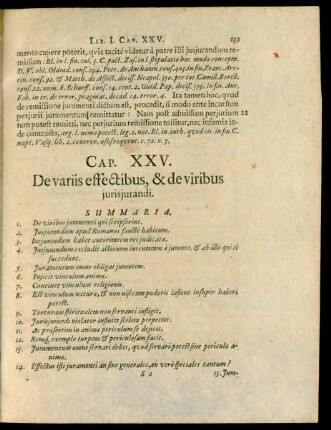 LIB. I. CAP. XXV. 139
mento capere poterit, quia tacitè videtur à patre illi jusjurandum re-
missum: Bl. in l. fin. col. 3. C. pact. Zas. in l. stipulatio hoc modo concepta.
D. V. obl. Oldrad. cons. 294. Petr. de Ancharan. cons. 409. in fin. Franc. Are-
tin. cons. 92. & Matth. de Afflict. decis. Neapol. 350. per tot. Camill. Borell.
cons. 22. num. 6. Schurff. cons. 14. cent. 2. Guid. Pap. decis. 395. in fin. Ant.
Fab. in tr. de error. pragmat. decad. 14. error. 4. Ita tamen hoc, quod
de remissione juramenti dictum est, procedit, si modo ante incursum
perjurii juramentum remittatur: Nam post admissum perjurium 22
non potest remitti, nec perjurium remissione tollitur, nec infamia in-
de contracta, arg. l. uemo potest. leg. 1. not. Bl. in auth. quod eis. in fin. C.
nupt. Vasq. lib. 2. controv. usu frequent. c. 72. n. 5.
CAP. XXV.
De variis effectibus, & de viribus
jurisjurandi.
SUMMARIA,
1. De viribus juramenti qui scripserint.
2. Jusjurandum apud Romanos sanctè habitum.
3. Jusjurandum habet autoritatem rei judicatæ.
4. Jusjurandum excludit actionem intentatam à jurante, & ab illo qui ei
succedunt.
5. Juramentum omne obligat juventem.
6. Injicit vinculum animæ.
7. Continet vinculum religionis.
8. Est vinculum naturæ, & non nisi cum pudoris læsione insuper haberi
potest.
9. Torturam spiritualem non servanti infigit.
10. Jurisjurandi violator infinita scelera perpetrat.
11. Ac proserùm in anima periculum se dejicit.
12. Remq́; exemplo turpem & periculosam facit.
13. Juramentum omne servari debet, quod servari potest sine periculo a-
nimæ.
14. Effectus isti juramenti an sint generales, an verò speciales tantum?
S 2 15. Jura-